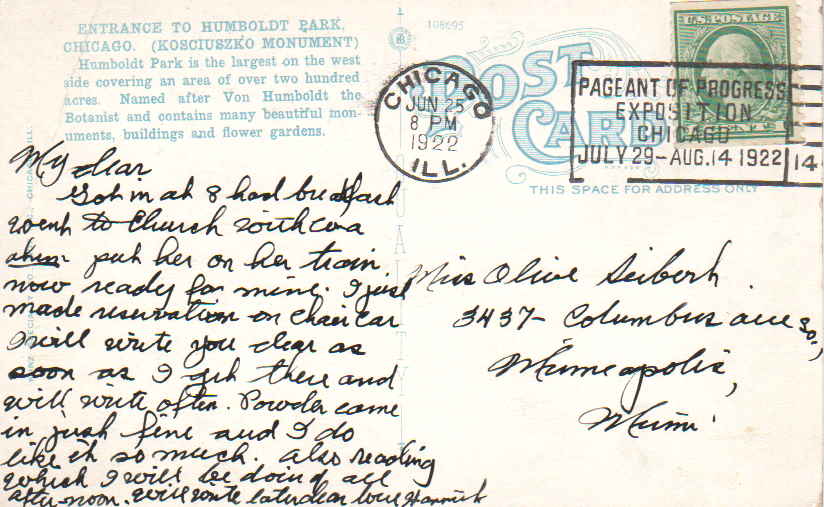 ENTRANCE TO HUMBOLDT PARK,
CHICAGO. (KOSCIUSZKO MONUMENT)
Humboldt Park is the largest on the west
side covering an area of over two hundred
acres. Named after Von Humboldt the
Botanist and contains many beautiful mon-
uments, buildings and flower gardens.
108695
POST
CARD
THIS SPACE FOR ADDRESS ONLY
U.S. POSTAGE
CHICAGO
JUN 25
8 PM
1922
ILL.
PAGEANT OF PROGRESS
EXPOSITION
CHICAGO
JULY 29-AUG. 14 1922
14
My dear
Got in at 8 had breakfast
went to Church with
put her on her train
now ready for mine. I just
made reservation on Chair Car
I will write you dear as
soon as I get there and
will write often. Powder came
in just fine and I do
like it so much. Also reading
which I will be doing all
after-noon. Will write later dear love Harriet
Miss Olive Seibert
3437- Columbus ave So.,
Minneapolis,
Minn